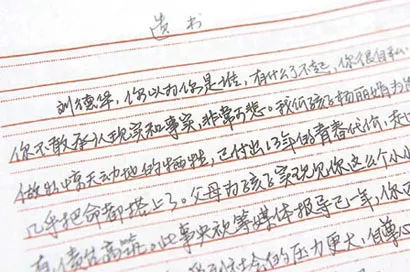 遗书
刘德华，你以为你是谁，有什么了不起，你很自私，
你不敢承认现实和事实，非常可悲。我低孩子杨丽娟为
做出惊天动地的牺牲，已付出13年的青春代价，走
几乎把命都搭上了。父母为孩子实现见你这么个小小
债台高筑。此事央视等媒体报导已一年，你
社会的压力更大，自尊心